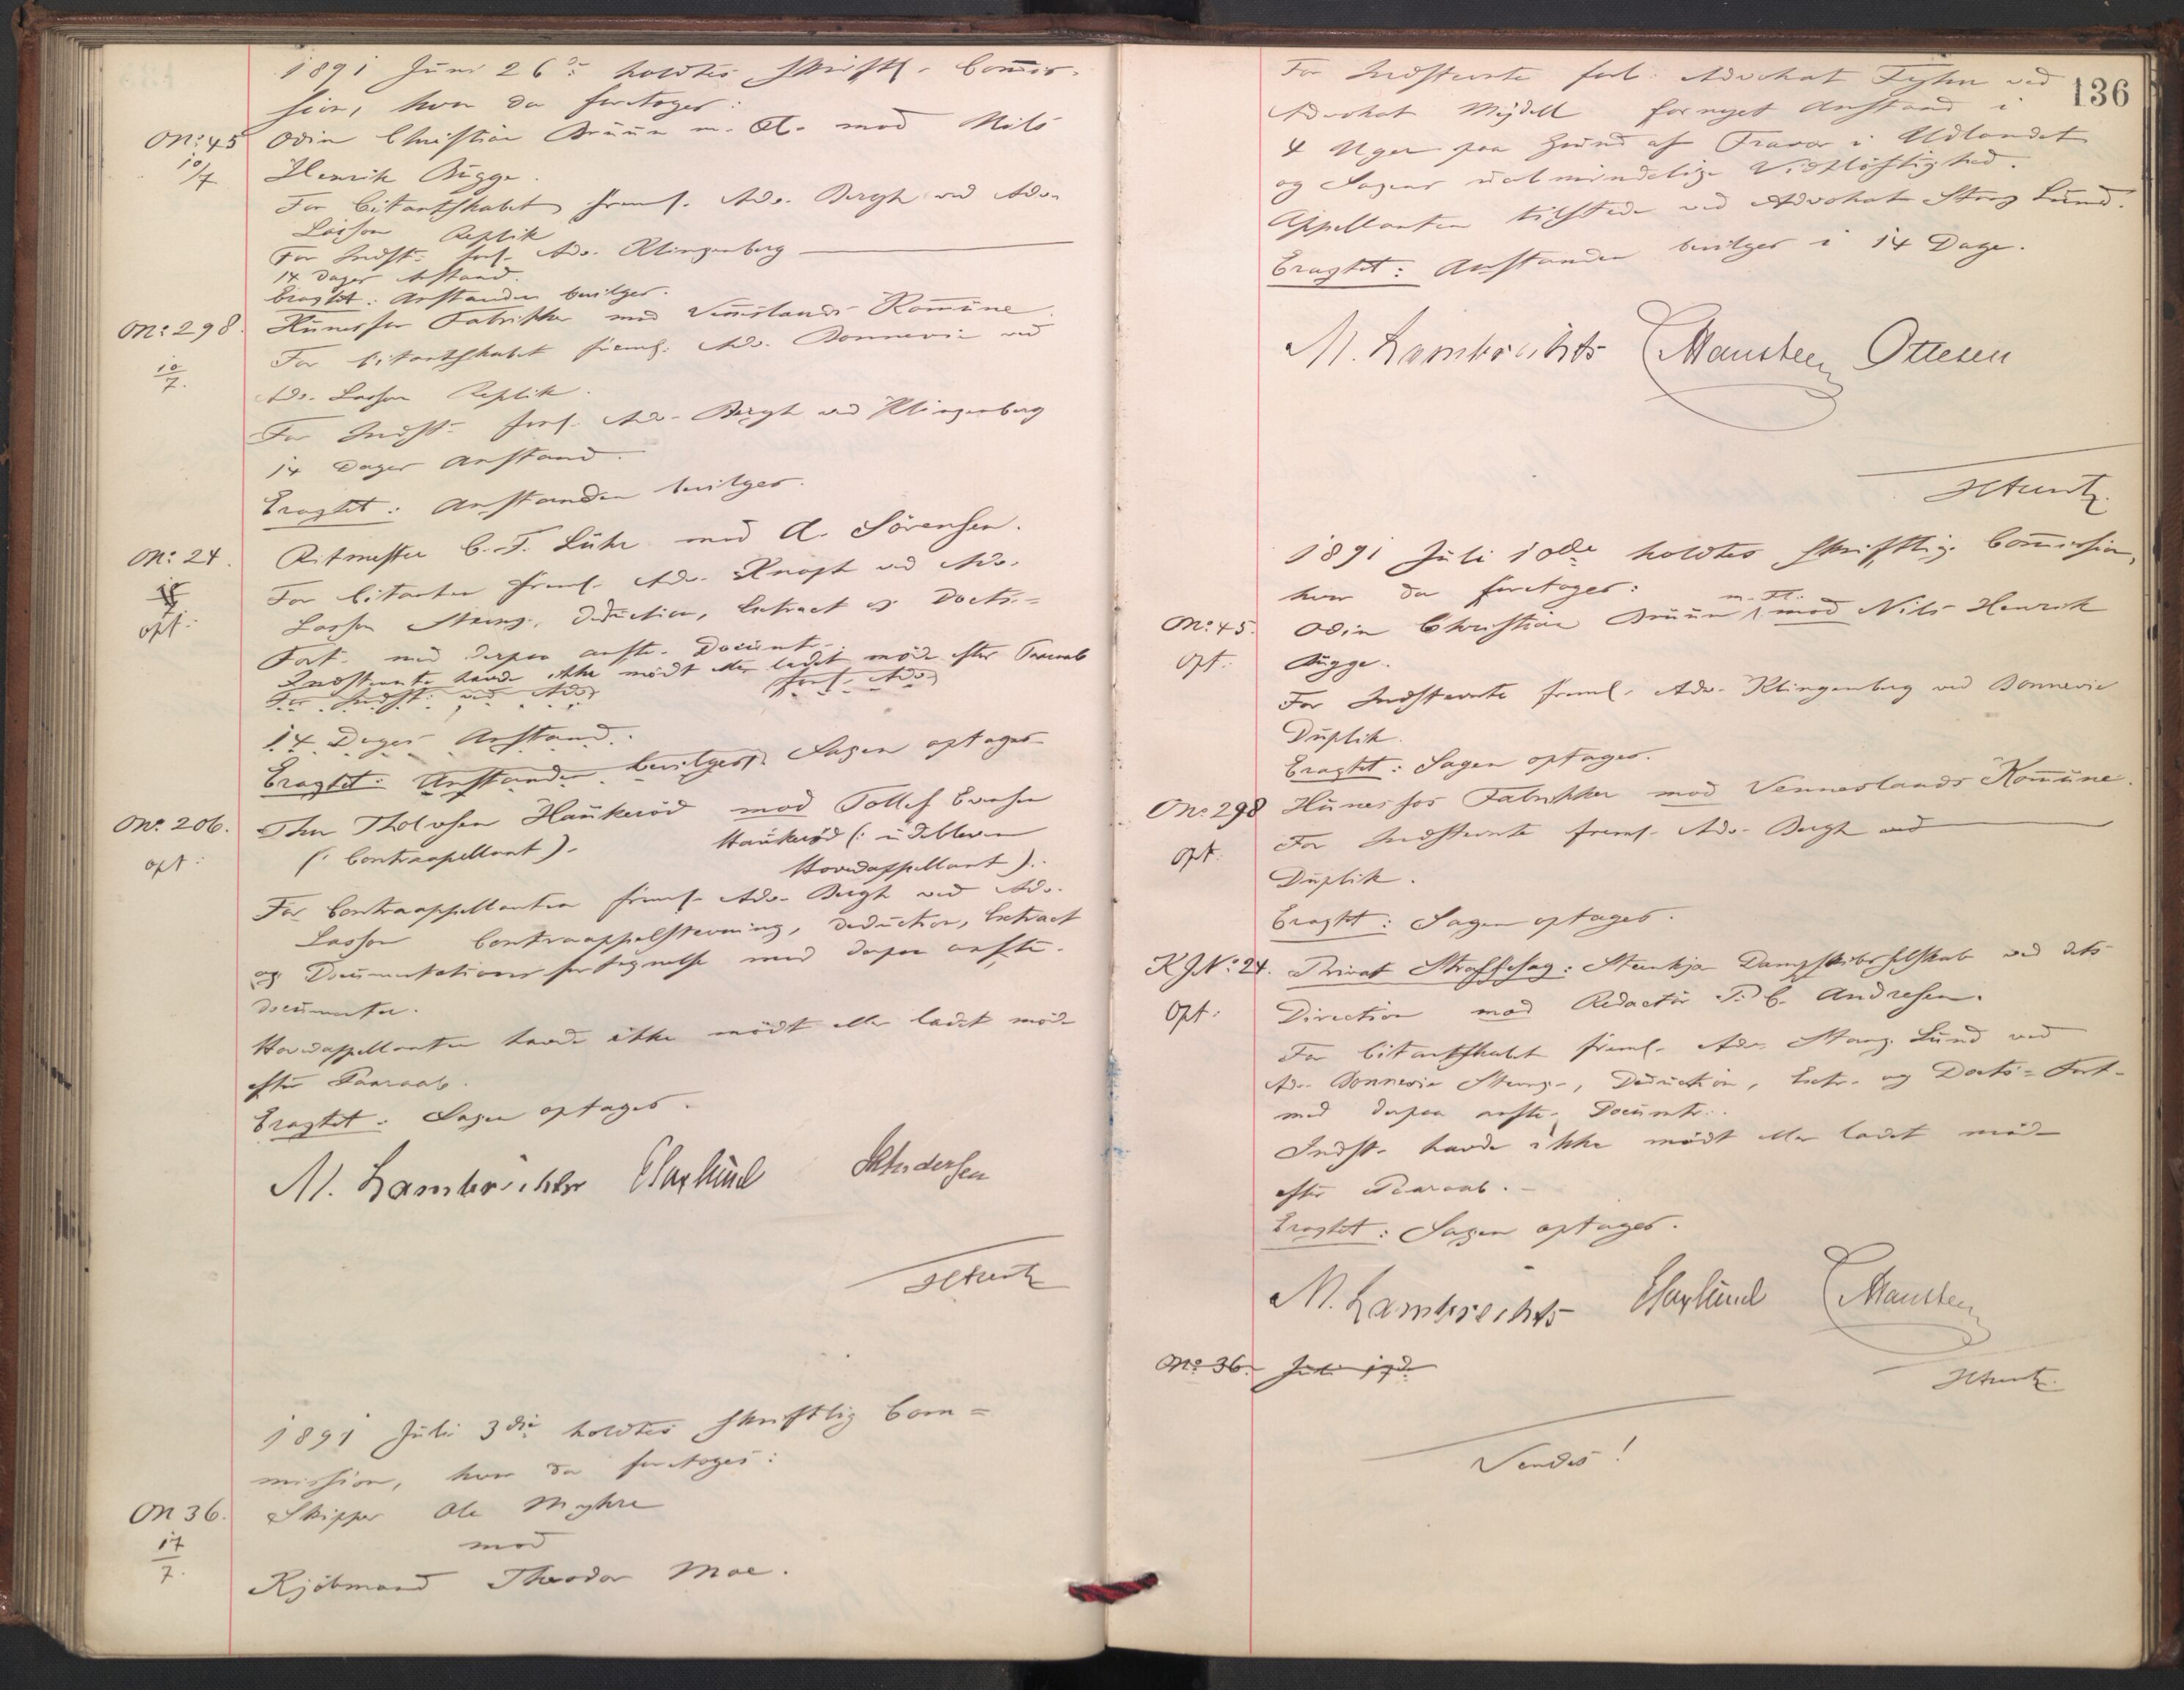 1891 Juni 26de holdtes skriftl. Commis-
sion, hvor da foretoges:
No: 45 Odin Christian Bruun m. Fl. mod Nils
10/7 Henrik Bugge.
For Citantskabet freml. Adv. Bergh ved Adv.
Lasson Replik
For Indst. forl. Adv. Klingenberg
14 Dages Anstand.
Eragtet: Anstanden bevilges.
No: 298. Hunsfos Fabrikker mod Venneslands Kommune.
For Citantskabet freml. Adv. Bonnevie ved
10/7. Adv. Lasson Replik.
For Indst. forl. Adv. Bergh ved Klingenberg
14 Dages Anstand.
Eragtet: Anstanden bevilges.
No: 24. Ritmester C. F. Lühr mod A. Sörensen.
For Citanten freml. Adv. Knoph ved Adv.
opt: Lasson Stevng., Deduction, Extract og Docts.=
Fort. med derpaa anfte. Documt.
Indstevnte havde ikke mödt eller ladet möde efter Paaraab
For Indst: ved Adv. forl. Adv.
14 Dages Anstand.
Eragtet: Anstanden bevilges. Sagen optages
No. 206. Tholvsen Haukeröd mod Tollef Evensen
opt: (: Contraappellant). Haukeröd (: udebleven
Hovedappellant).
For Contraappellanten freml. Adv. Bergh ved Adv.
Lasson Contraappelstevning, Deduction, Extract
og Documentationsfortegnelse med derpaa anfte.
Documenter.
Hovedappellanten havde ikke mödt eller ladet möde
efter Paaraab.
Eragtet: Sagen optages.
M. Lambrechts
1891 Juli 3die holdtes skriftlig Com=
mission, hvor da foretoges:
No 36. Skipper Ole Myhre
17/7. mod
Kjöbmand Theodor Moe.
136
For Indstevnte forl. Advokat ved
Advokat Mejdell fornyet Anstand i
4 Uger paa Grund af Fravær i Udlandet
og Sagens ualmindelige Vidtlöftighed.
Appellanten tilstede ved Advokat Stang Lund.
Eragtet: Anstanden bevilges i 14 Dage.
M. Lambrechts Mansteen Ottesen
1891 Juli 10de holdtes skriftlig Commission,
hvor da foretoges:
No: 45. Odin Christian Bruun m. Fl. mod Nils Henrik
opt: Bugge.
For Indstevnte freml. Adv. Klingenberg ved Bonnevie
Duplik.
Eragtet: Sagen optages.
No: 298 Hunesfos Fabrikker mod Venneslands Kommune.
For Indstevnte freml. Adv. Bergh ved
opt: Duplik.
Eragtet: Sagen optages.
K.J.No: 24. Privat Straffesag: Stenkjær Dampskibsselskab ved dets
Opt: Direction mod Redactör P. C. Andresen.
For Citantskabet freml. Adv. Stang Lund ved
Adv. Bonnevie Stevng., Deduction, Extr. og Docts.= Fort.
med derpaa anfte. Documtr.
Indst. havde ikke mödt eller ladet möde
efter Paaraab.
Eragtet: Sagen optages.
M. Lambrechts Mansteen
No 36. Juli 17d.
Vendes!